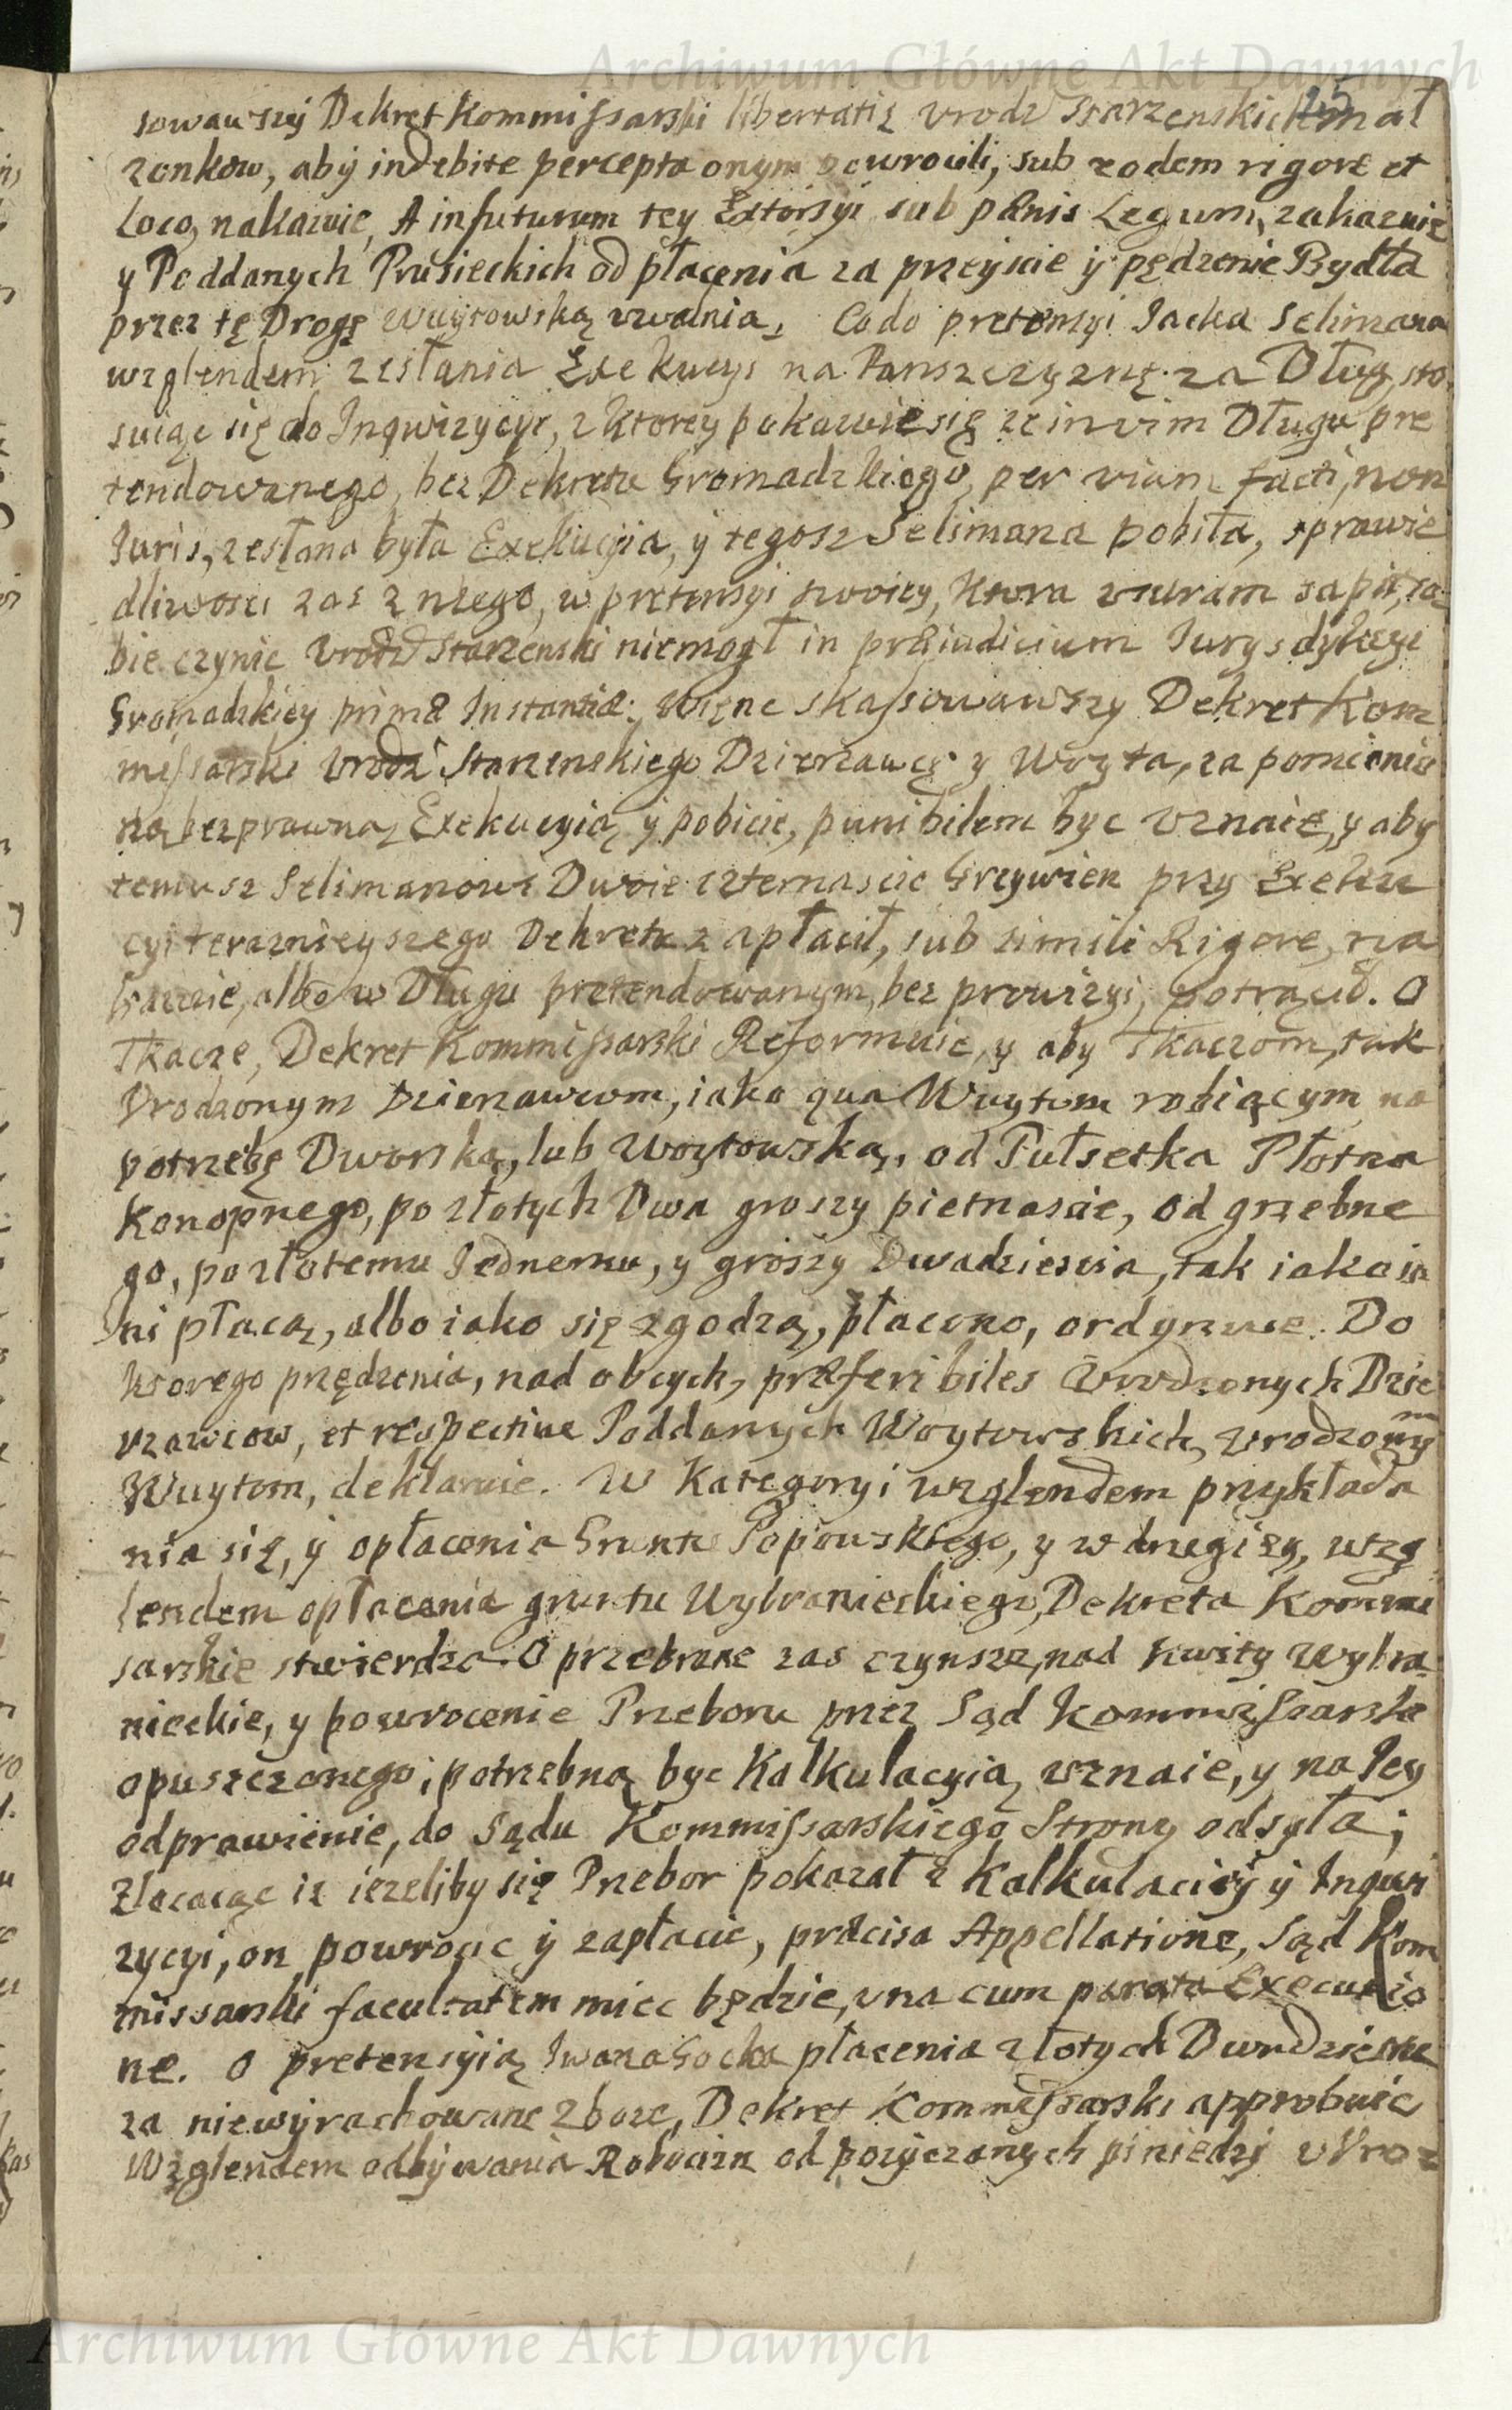 Archiwum Główne Akt Dawnych
25
sowawszy Dekret Kommissarski libertatis Urodz Starzenskich mał
zonkow, aby indebite percepta onym powrocili, sub eodem rigore et
loco, nakazuie, A in futurum tey Extorsyi sub pænis Legum, zakazuie
y Poddanych Prusieckich od płacenia za przeyscie y pędzenie Bydła
przez tę Drogę Wuytowską uwalnia, Co do pretensyi Jacka Selimana
wzglendem zesłania Exekucyi na Panszczyznę za Dług, sto
suiąc się do Inqwizycyi, z ktorey pokazuie się ze in vim Długu pre
tendowanego, bez Dekretu Gromadzkiego, per viam facti, non
Juris, zesłana była Exekucyia, y tegosz Selimana pobiła, sprawie
dliwosci zas z niego, w pretensyi swoiey, ktora usuram sapit, so
bie czynic Urodz Starzenski niemogł in præiudicium Jurysdykcyi
Gromadzkiey primæ Instantiæ; Więnc skassowawszy Dekret Kom
missarski Urodz Starzenskiego Dzierzawcę y Woyta, za pomienio
ną bezprawną Exekucyią y pobicie, punibilem byc uznaie, y aby
temusz Selimanowi Dwoie czternascie Grzywien przy Exeku
cyi terazniejszego Dekretu zapłacił, sub simili Rigore, na
kazuie, albo w Długu pretendowanym, bez prowizyi, potrącił. O
Tkacze, Dekret Kommissarski Reformuie, y aby Tkaczom, tak
Urodzonym Dzierzawcom, iako qua Wuytom robiącym na
potrzebę Dworską, lub Woytowską, od Pułsetka Płotna
Konopnego, po złotych Dwa groszy pietnascie, od grzebne
go, po złotemu Jednemu, y groszy Dwadziescia, tak iako in
ni płacą, albo iako się zgodzą, płacono, ordynuie. Do
ktorego przędzenia, nad obcych, præferibiles Urodzonych Dzie
rzawcow, et respective Poddanych Woytowskich, Urodzonym
Wuytom, deklaruie. W Kategoryi wzglendem przykłada
nia się, y opłacenia Gruntu Popowskiego, y w drugiey, wzg
lendem opłacenia gruntu Wybranieckiego, Dekreta Kommis
sarskie stwierdza. O przebrane zas czynsze, nad kwity Wybra
nieckie, y powrocenie Przeboru przez Sąd Kommissarski
opuszczonego, potrzebną byc Kalkulacyią uznaie, y na Jey
odprawienie, do Sądu Kommissarskiego Strony odsyła;
Zlecaiąc iz iezeliby się Przebor pokazał z Kalkulacyi y Inqwi
zycyi, on powrocic y zapłacic, præcisa Appellatione, Sąd Kom
missarski facultatem miec będzie, una cum parata Executio
ne. O pretensyią Iwana Gocka płacenia złotych Dwudziestu
za niewyrachowane Zboze, Dekret Kommissarski approbuie
Wzglendem odbywania Robocizn od pozyczonych piniedzy u Uro
Archiwum Główne Akt Dawnych